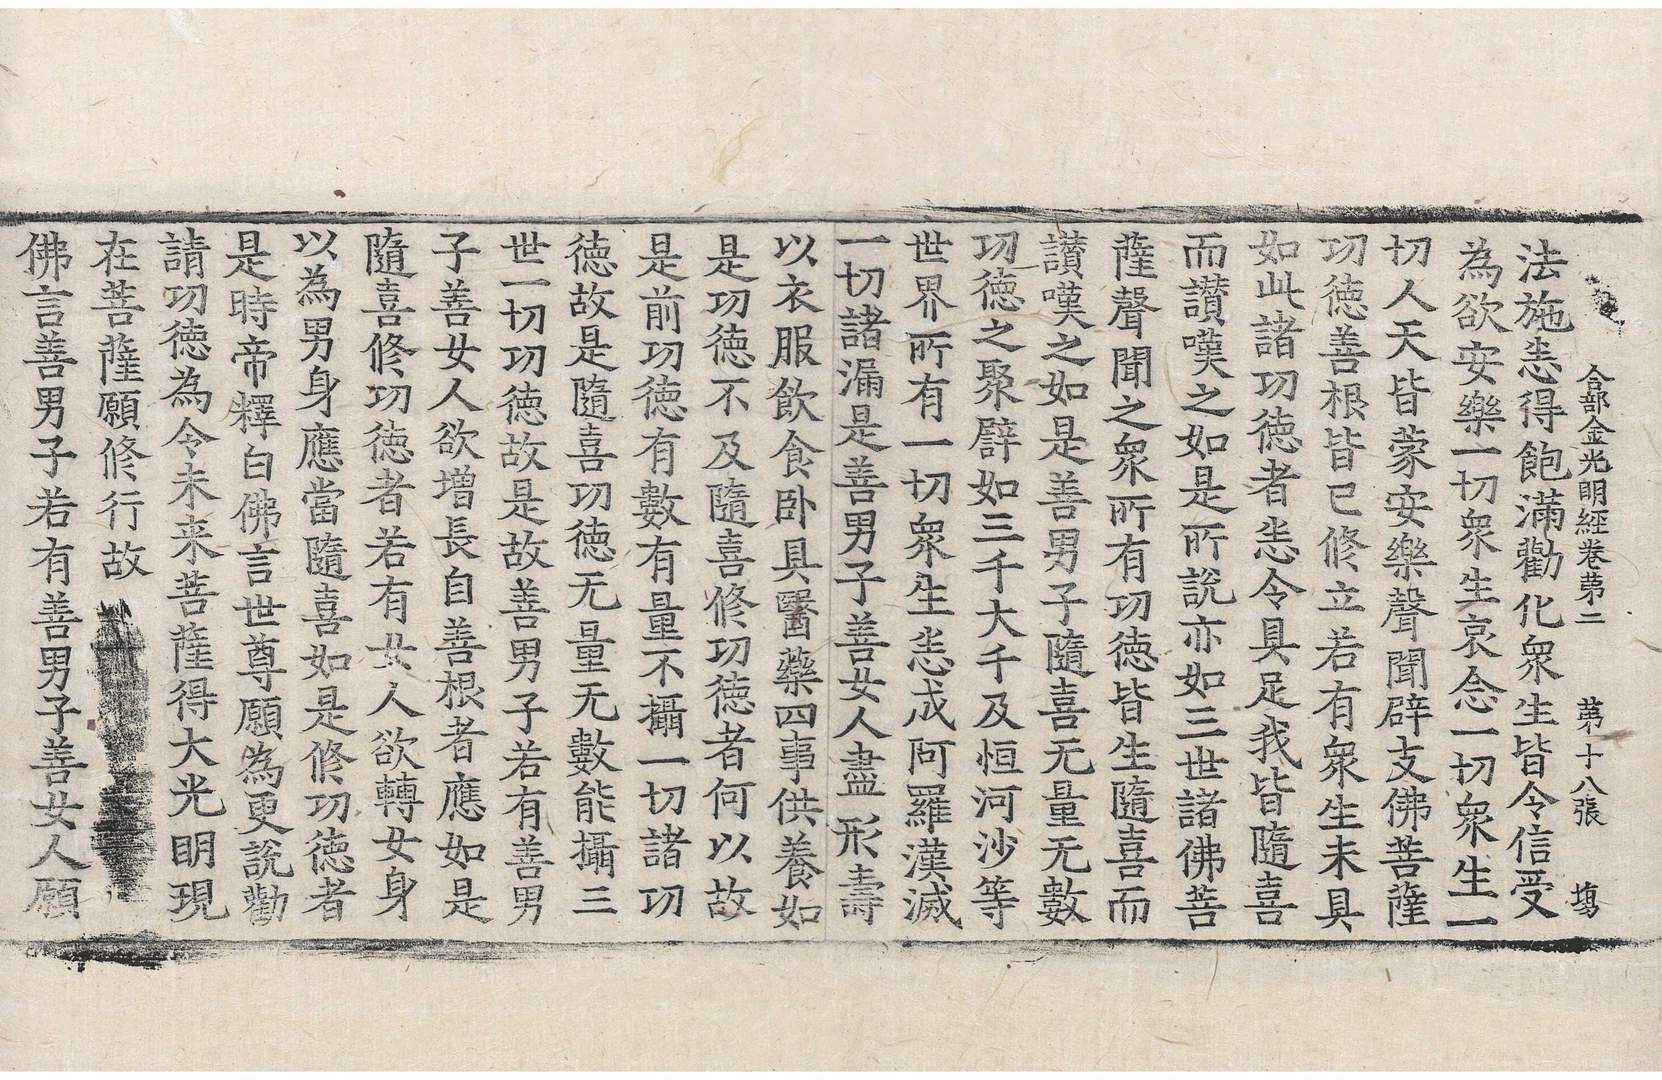 合部金光明經卷苐二　苐十八張　塲
法施恙得飽滿勸化衆生皆令信受
為欲安樂一切衆生哀念一切衆生一
切人天皆蒙安樂聲聞辟支佛菩薩
功德善根皆已修立若有衆生未具
如此諸功德者恙令具足我皆隨喜
而讃嘆之如是所說亦如三世諸佛菩
薩聲聞之衆所有功德皆生隨喜而
讃嘆之如是善男子隨喜无量无數
功德之聚譬如三千大千及恒河沙等
世界所有一切衆生恙成阿羅漢滅
一切諸漏是善男子善女人盡形壽
以衣服飲食卧具醫藥四事供養如
是功德不及隨喜修功德者何以故
是前功德有數有量不攝一切諸功
德故是隨喜功德无量无數能攝三
世一切功德故是故善男子若有善男
子善女人欲增長自善根者應如是
隨喜修功德者若有女人欲轉女身
以為男身應當隨喜如是修功德者
是時帝釋白佛言世尊願為更說勸
請功德為令未来菩薩得大光明現
在菩薩願修行故
佛言善男子若有善男子善女人願